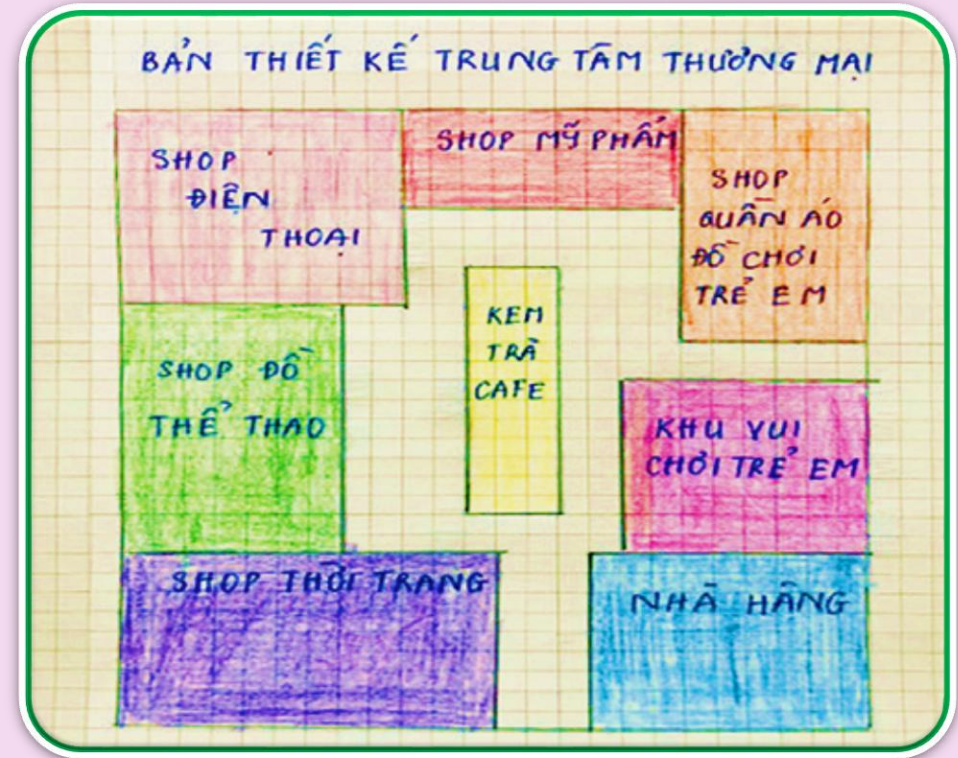 BẢN THIẾT KẾ TRUNG TÂM THƯƠNG MẠI
SHOP
ĐIỆN
THOẠI
SHOP MỸ PHẨM
SHOP
QUẦN ÁO
ĐỒ CHƠI
TRẺ EM
KEM
TRÀ
CAFE
SHOP ĐỒ
THỂ THAO
KHU VUI
CHƠI TRẺ EM
SHOP THỜI TRANG
NHÀ HÀNG